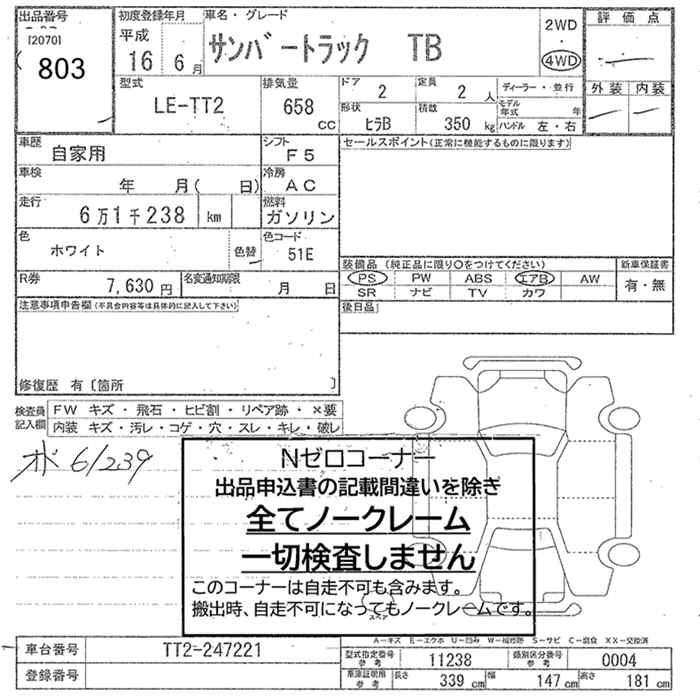 出品番号 初度登録年月 車名・グレード 評価点
[2070] 平成 2WD
803 16 6月 サンバートラック TB 4WD
外装 内装
型式 排気量 ドア 定員 ディーラー・並行
LE-TT2 658 CC 2 2人 モデル年式 年
形状 積載 ハンドル 左・右
ヒラB 350 kg
車歴 シフト セールスポイント(正常に機能するものに限ります)
自家用 F5
車検 冷房
年 月( 日) AC
走行 燃料
6万1千238 km ガソリン
色 色替 色コード
ホワイト 51E
装備品 (純正品に限り○をつけてください) 新車保証書
PS PW ABS エアB AW 有・無
SR ナビ TV カワ
R券 名変通知期限
7,630円 月 日
後日品
注意事項申告欄(不具合内容等は具体的に記入して下さい)
修復歴 有〔箇所 〕
検査員記入欄
FW キズ・飛石・ヒビ割・リペア跡・×要
内装 キズ・汚レ・コゲ・穴・スレ・キレ・破レ
オド 61239
Nゼロコーナー
出品申込書の記載間違いを除き
全てノークレーム
一切検査しません
このコーナーは自走不可も含みます。
搬出時、自走不可になってもノークレームです。
スペア
A-キズ E-エクボ U-凹み W-補修跡 S-サビ C-腐食 XX-交換済
車台番号 TT2-247221
登録番号
型式指定番号 参考 11238 類別区分番号 参考 0004
車庫証明用 参考 長さ 339 cm 幅 147 cm 高さ 181 cm